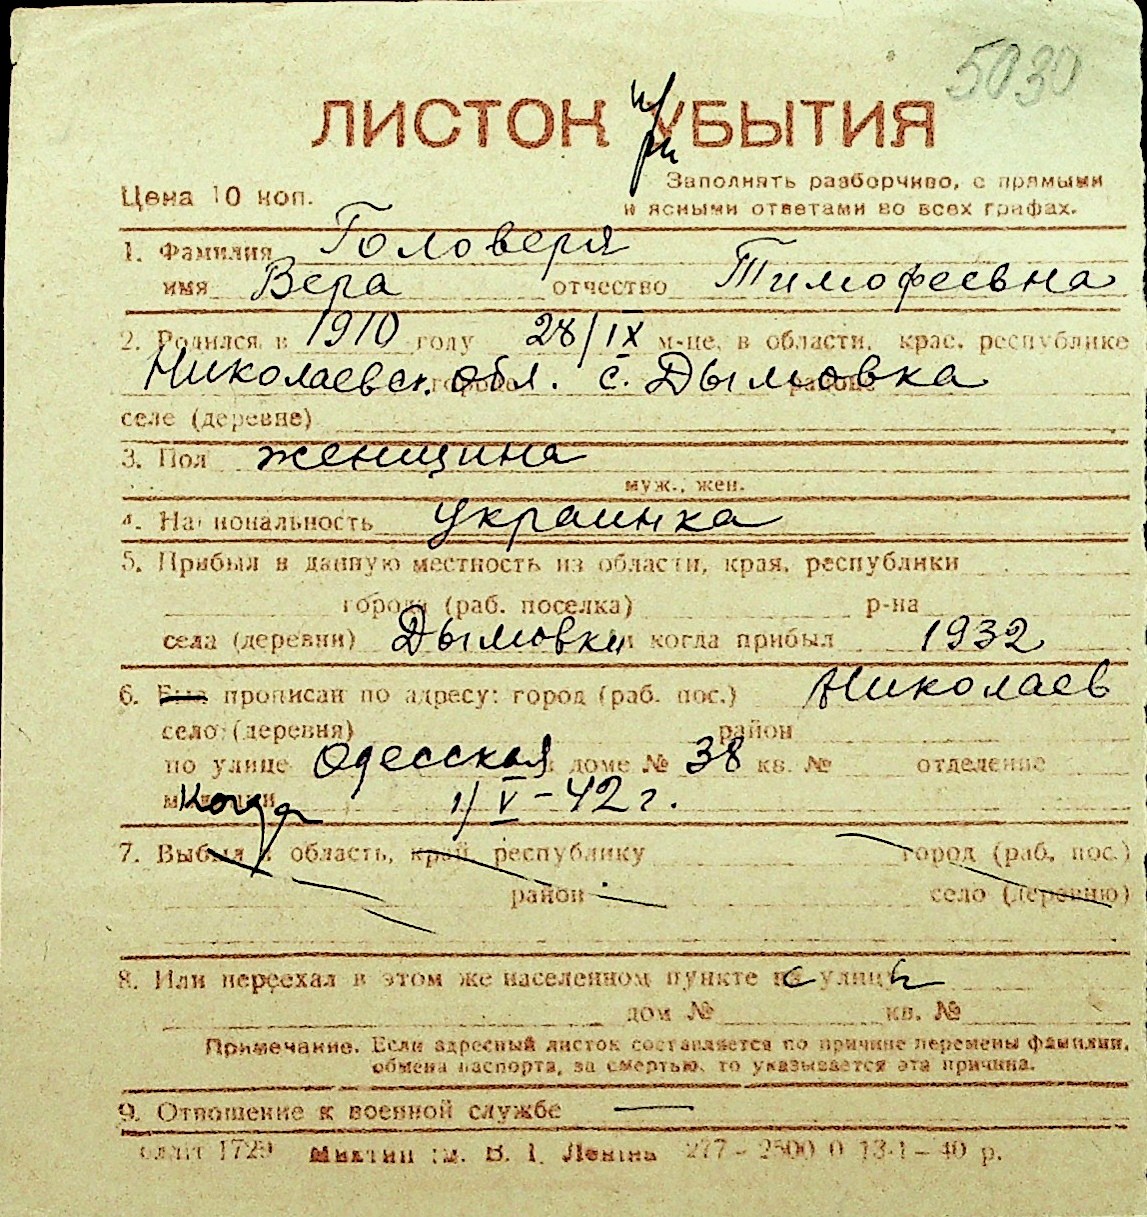 5030
ЛИСТОК при УБЫТИЯ
Цена 10 коп.
Заполнять разборчиво, с прямыми
и ясными ответами во всех графах.
1. Фамилия Головеря
имя Вера отчество Тимофеевна
2. Родился в 1910 году 28/IX м-це, в области, крае, республике
Николаевск. обл. городе с. Дымовка районе
селе (деревне)
3. Пол женщина
муж., жен.
4. Национальность украинка
5. Прибыл в данную местность из области, края, республики
города (раб. поселка) р-на
села (деревни) Дымовки и когда прибыл 1932
6. Был прописан по адресу: город (раб. пос.) Николаев
село (деревня) район
по улице Одесская в доме № 38 кв. № отделение
милиции Когда 1/V-42 г.
7. Выбыл в область, край, республику город (раб. пос.)
район село (деревню)
8. Или переехал в этом же населенном пункте с улицы
дом № кв. №
Примечание. Если адресный листок составляется по причине перемены фамилии,
обмена паспорта, за смертью, то указывается эта причина.
9. Отношение к военной службе —
1729 Миктип ім. В. І. Леніна 277 - 2500 0 13-1-40 р.